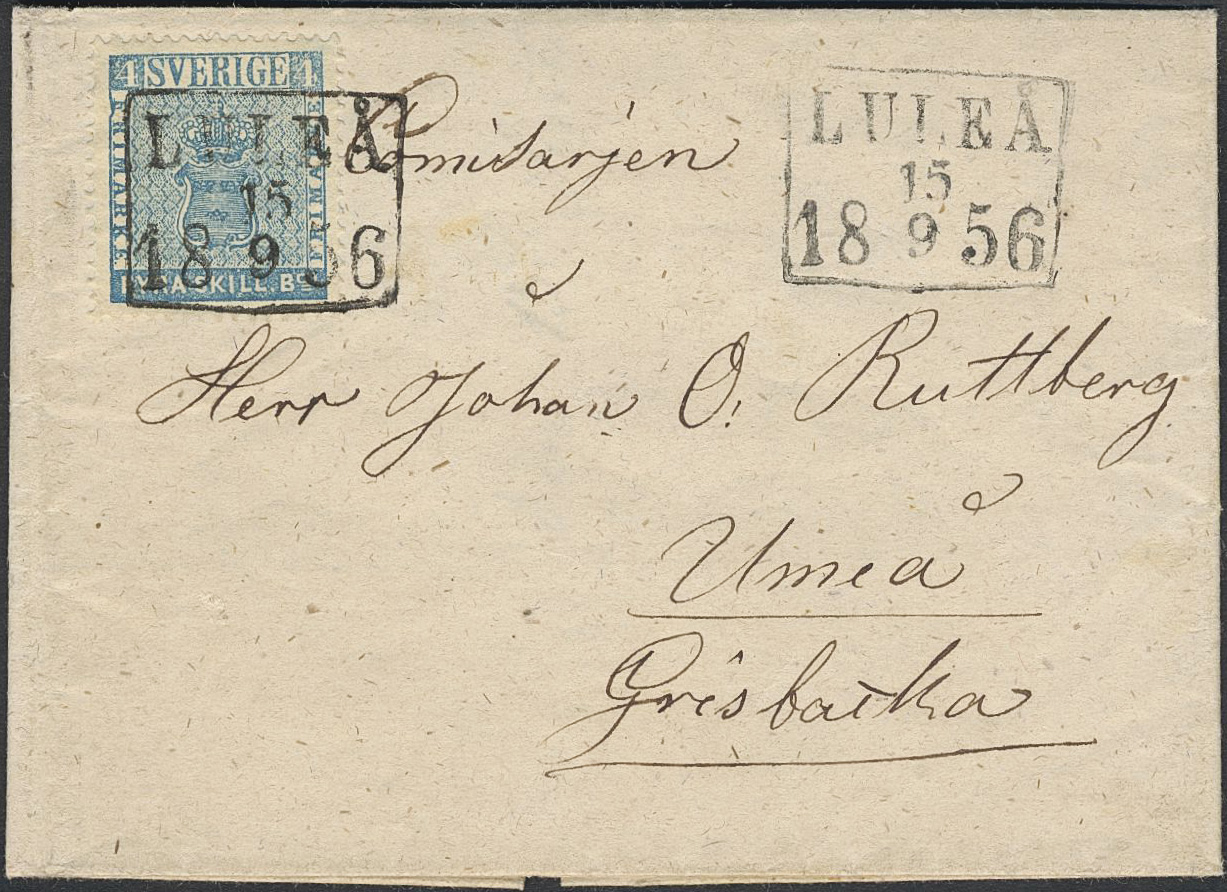 4 SVERIGE 4
FRIMARKE
FRIMARKE
FYRA SKILL. Bco
LULEÅ
15
18 9 56
LULEÅ
15
18 9 56
Comisarjen
Herr Johan O. Ruttberg
Umeå
Grisbacka